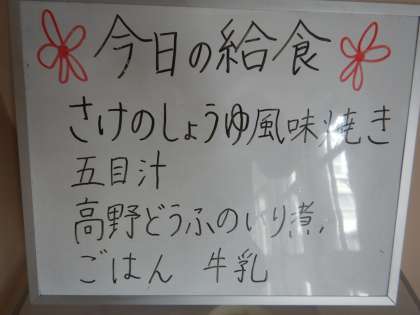 今日の給食
さけのしょうゆ風味焼き
五目汁
高野どうふのいり煮
ごはん 牛乳